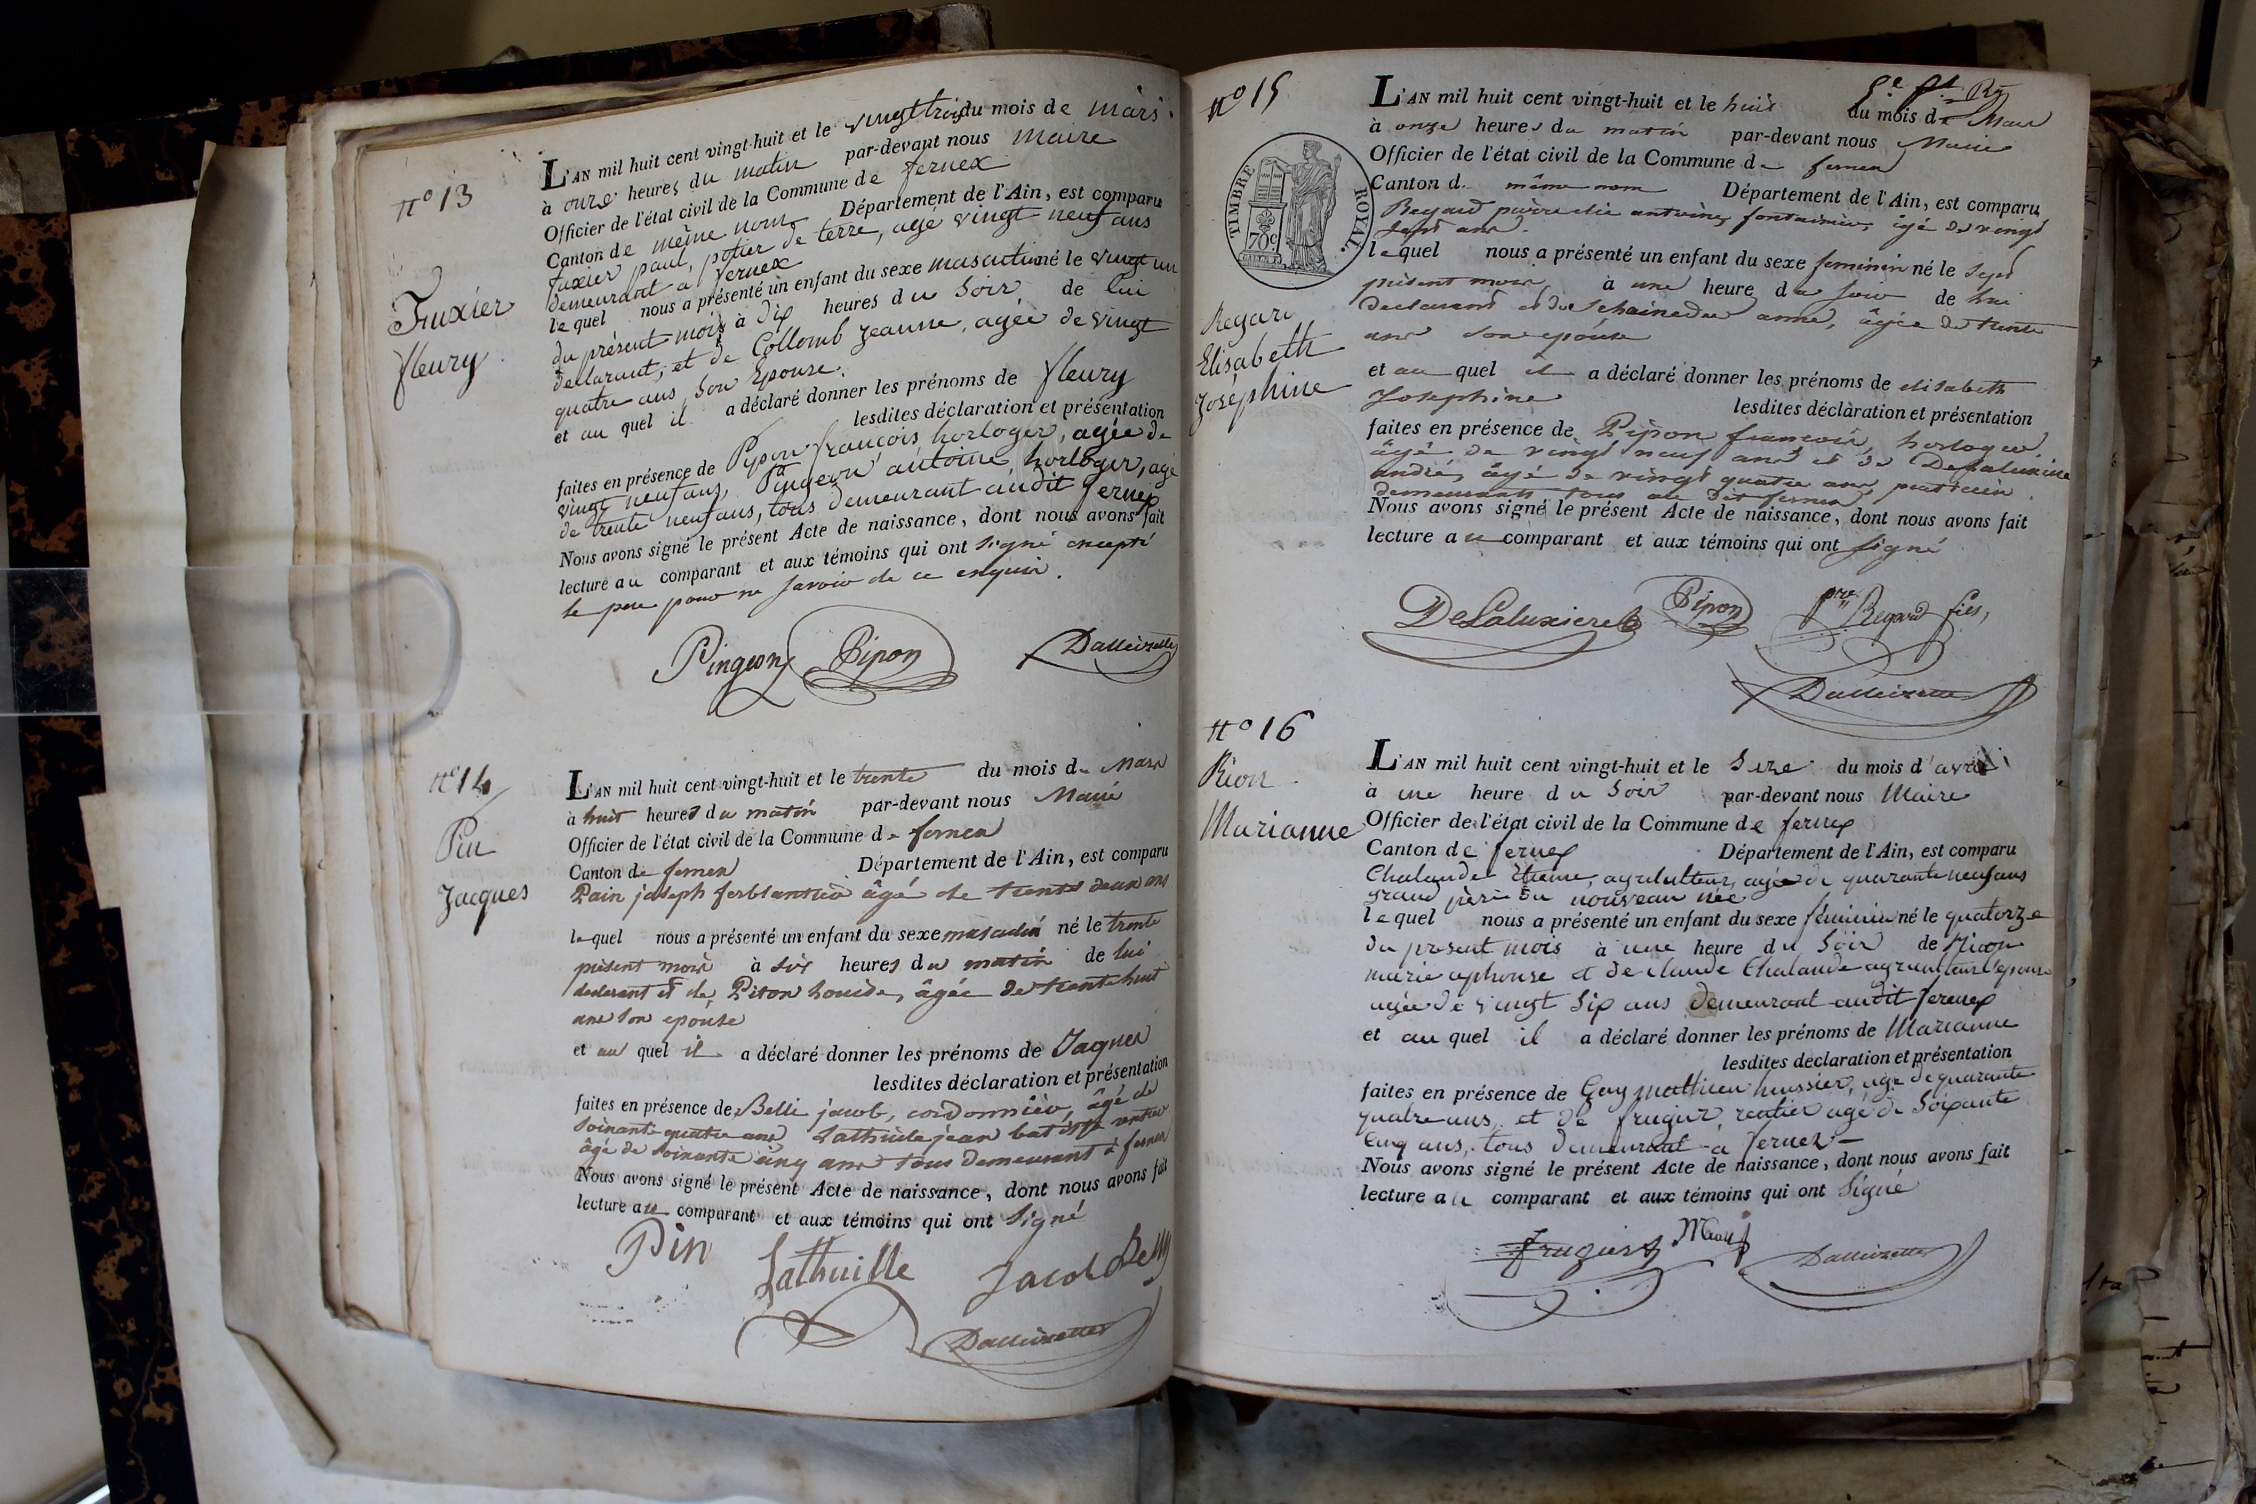 n° 13
Fuxier
fleury
L'AN mil huit cent vingt-huit et le vingt trois du mois de mars
à onze heures du matin par-devant nous maire
Officier de l'état civil de la Commune de fernex
Canton de même nom Département de l'Ain, est comparu
fuxier paul, potier de terre, agé vingt neuf ans
demeurant a fernex
lequel nous a présenté un enfant du sexe masculin né le vingt un
du présent mois à dix heures du soir de lui
declarant, et de Collomb Jeanne, agée de vingt
quatre ans son Epouse.
et au quel il a déclaré donner les prénoms de fleury
lesdites déclaration et présentation
faites en présence de Pipon françois horloger, agée de
vingt neuf ans, Pingeon antoine, horloger, agé
de trente neuf ans, tous demeurant audit fernex
Nous avons signé le présent Acte de naissance, dont nous avons fait
lecture au comparant et aux témoins qui ont signé excepté
le pere pour ne savoir de ce enquis.
Pingeon Pipon Dalleizette
n° 14
Pin
Jacques
L'AN mil huit cent vingt-huit et le trente du mois de Mars
à huit heures du matin par-devant nous Maire
Officier de l'état civil de la Commune de fernex
Canton de fernex Département de l'Ain, est comparu
Pain joseph ferblantier âgé de trente deux ans
lequel nous a présenté un enfant du sexe masculin né le trente
présent mois à six heures du matin de lui
declarant et de Piton Louide, âgée de trente huit
ans son epouse
et au quel il a déclaré donner les prénoms de Jaques
lesdites déclaration et présentation
faites en présence de Belli jacob, cordonnier, âgé de
soixante quatre ans Lathuile jean batiste rentier
âgé de soixante cinq ans tous demeurant à fernex
Nous avons signé le présent Acte de naissance, dont nous avons fait
lecture au comparant et aux témoins qui ont signé
Pin Lathuille Jacob Belly
Dalleizette
n° 15
TIMBRE ROYAL
70c
Regard
Elisabeth
Joséphine
L'AN mil huit cent vingt-huit et le huit du mois de Mars
à onze heures du matin par-devant nous Maire
Officier de l'état civil de la Commune de fernex
Canton d. même nom Département de l'Ain, est comparu
Regard pierre elie antoine, fontainier, âgé de vingt
sept ans.
lequel nous a présenté un enfant du sexe feminin né le sept
présent mois, à une heure du soir de lui
declarant et de anne, âgée de trente
ans son epouse
et au quel il a déclaré donner les prénoms de elisabeth
Josephine lesdites déclaration et présentation
faites en présence de Pipon francois, horloger
âgé de vingt neuf ans et de Delaluxiere
andré, âgé de vingt quatre ans, praticien
demeurants tous au dit fernex
Nous avons signé le présent Acte de naissance, dont nous avons fait
lecture au comparant et aux témoins qui ont signé
DeLaluxiere Pipon pre Regard fils,
Dalleizette
n° 16
Rion
Marianne
L'AN mil huit cent vingt-huit et le Seze du mois d'avril
à une heure du Soir par-devant nous Maire
Officier de l'état civil de la Commune de fernex
Canton de fernex Département de l'Ain, est comparu
Chalande Etienne, agriculteur, agée de quarante neuf ans
grand père du nouveau née
lequel nous a présenté un enfant du sexe féminin né le quatorze
du présent mois à une heure du Soir de Rion
marie alphonse et de claude Chalande agriculteur l'epouse
agée de vingt six ans demeurant audit fernex
et au quel il a déclaré donner les prénoms de Marianne
lesdites déclaration et présentation
faites en présence de Gay mathieu huissier, age de quarante
quatre ans, et de frugier, rentier agé de Soixante
Cinq ans, tous demeurant a fernex
Nous avons signé le présent Acte de naissance, dont nous avons fait
lecture au comparant et aux témoins qui ont Signé
frugier Dalleizette